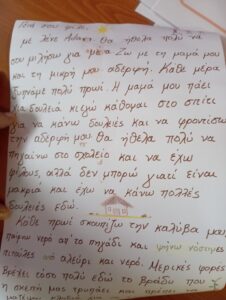 Γεια σου φίλε,
με λένε Αδαεζ θα ήθελα πολύ να
σου μιλήσω για Ζω με τη μαμά μου
και τη μικρή μου αδερφή. Κάθε μέρα
ξυπνάμε πολύ πρωί. Η μαμά μου πάει
για δουλειά κι εγώ κάθομαι στο σπίτι
για να κάνω δουλειές και να φροντίσω
την αδερφή μου θα ήθελα πολύ να
πηγαίνω στο σχολείο και να έχω
φίλους, αλλά δεν μπορώ γιατί είναι
μακριά και έχω να κάνω πολλές
δουλειές εδώ.
Κάθε πρωί σκουπίζω την καλύβα μου,
παίρνω νερό απ το πηγάδι και ψήνω νόστιμες
πίτουλες από αλεύρι και νερό. Μερικές φορές
βρέχει τόσο πολύ εδώ το βράδυ που
η σκεπή μας τρυπάει και πρέπει να